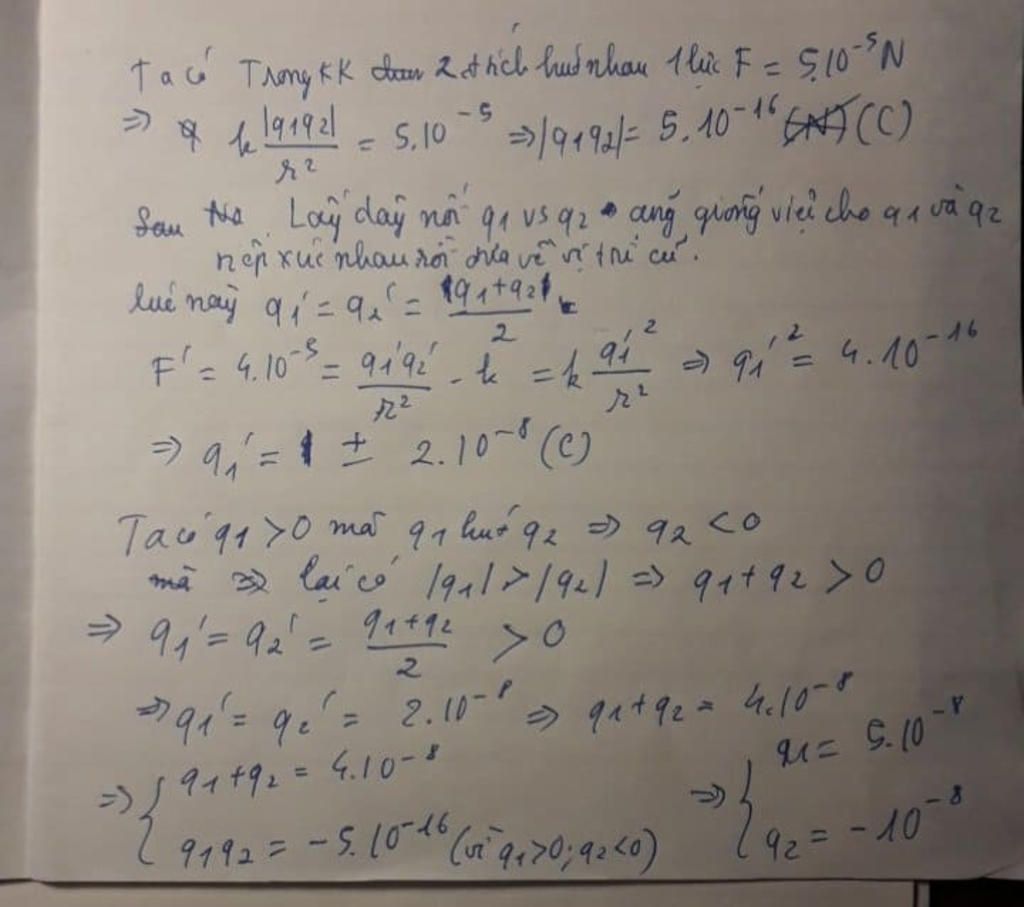 Ta có Trong KK 2 đtích hút nhau 1 lực F = 5.10⁻⁵ N
⇒ k |q1q2| / r² = 5.10⁻⁵ ⇒ |q1q2| = 5.10⁻¹⁶ (C)
Sau Lấy dây nối q1 vs q2 giống việc cho q1 và q2
tiếp xúc nhau rồi đưa về vị trí cũ.
lúc này q1' = q2' = (q1+q2) / 2
F' = 4.10⁻⁵ = q1'q2' / r² . k = k q1'² / r² ⇒ q1'² = 4.10⁻¹⁶
⇒ q1' = ± 2.10⁻⁸ (C)
Ta có q1 > 0 mà q1 hút q2 ⇒ q2 < 0
mà lại có |q1| > |q2| ⇒ q1 + q2 > 0
⇒ q1' = q2' = (q1+q2) / 2 > 0
⇒ q1' = q2' = 2.10⁻⁸ ⇒ q1+q2 = 4.10⁻⁸
⇒ { q1+q2 = 4.10⁻⁸ ⇒ { q1 = 5.10⁻⁸
q1q2 = -5.10⁻¹⁶ (vì q1>0; q2<0) q2 = -10⁻⁸